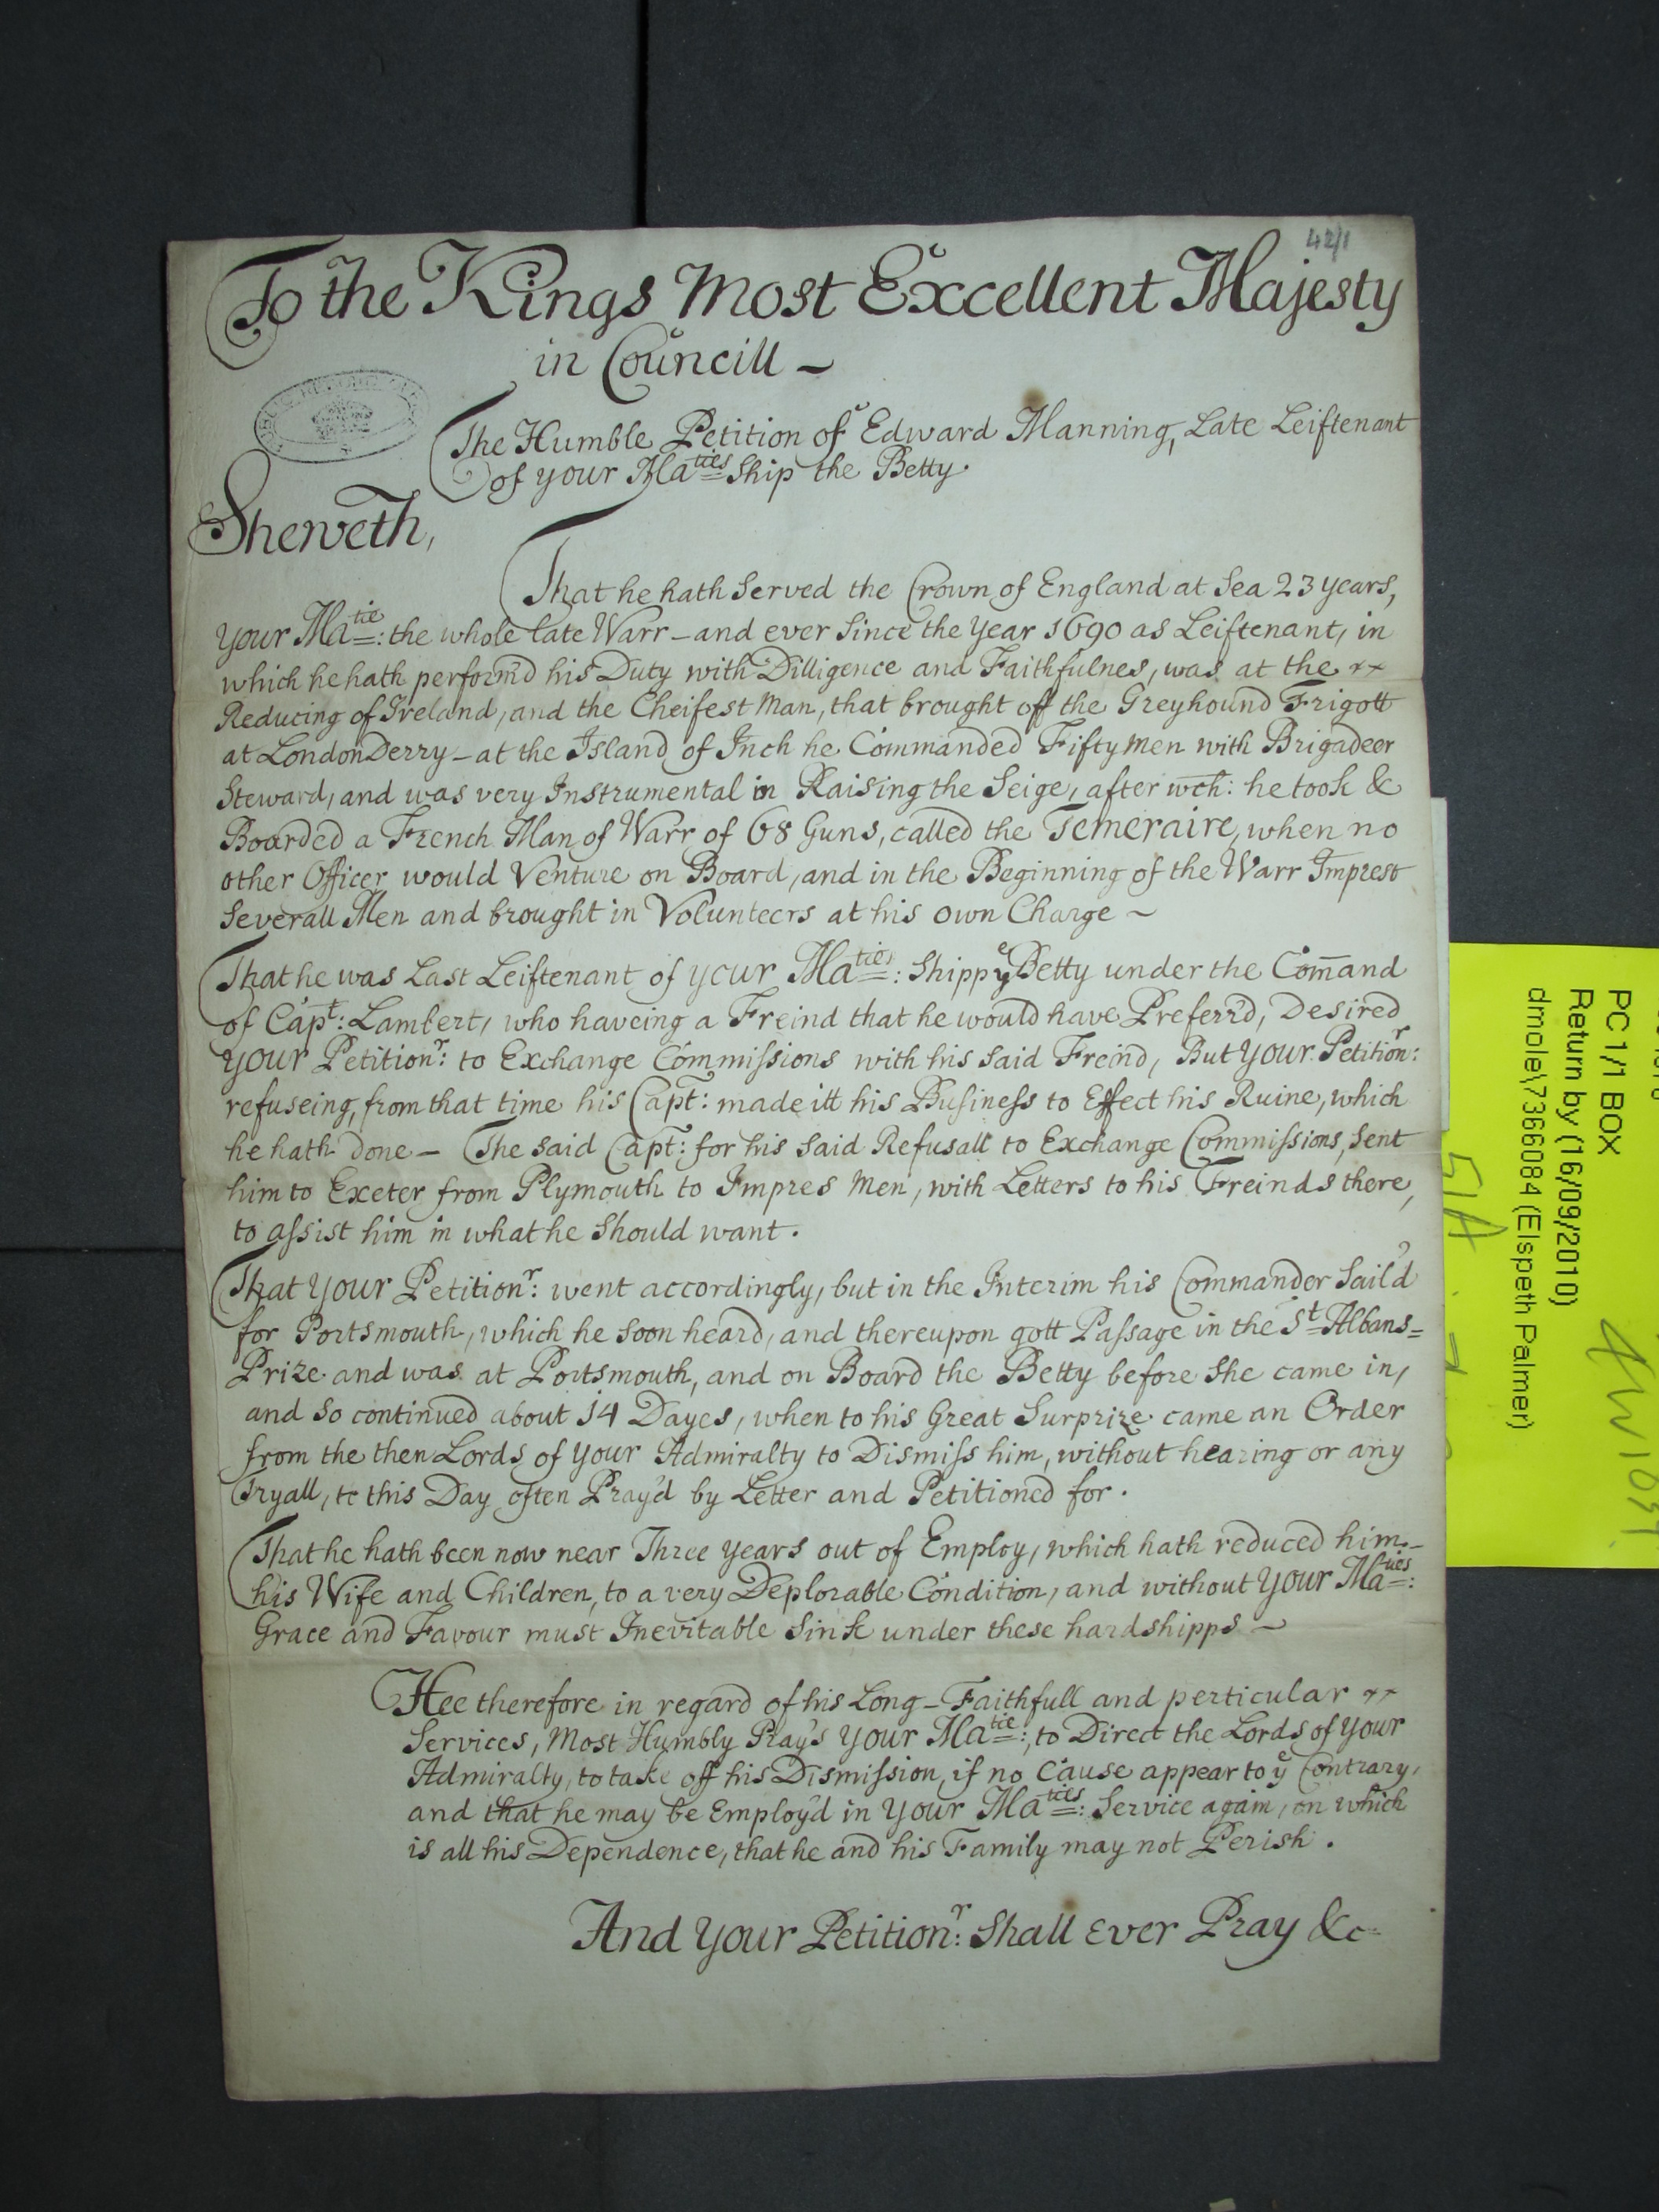 42/1
To the Kings Most Excellent Majesty
in Councill -
The Humble Petition of Edward Manning, Late Leiftenant
of your Maties Ship the Betty.
Sheweth,
That he hath Served the Crown of England at Sea 23 years,
your Matie: the whole late Warr - and ever Since the Year 1690 as Leiftenant, in
which he hath perform'd his Duty with Dilligence and Faithfulnes, was at the
Reducing of Ireland, and the Cheifest Man, that brought off the Greyhound Frigott
at LondonDerry - at the Island of Inch he Commanded Fifty Men with Brigadeer
Steward, and was very Instrumental in Raising the Seige, after wch: he took &
Boarded a French Man of Warr of 68 Guns, called the Temeraire, when no
other Officer would Venture on Board, and in the Beginning of the Warr Imprest
Severall Men and brought in Volunteers at his own Charge ~
That he was Last Leiftenant of your Maties: Shipp ye Betty under the Comand
of Capt: Lambert, who haveing a Freind that he would have Preferr'd, Desired
your Petitionr: to Exchange Commissions with his said Freind, But your Petitionr:
refuseing, from that time his Capt: made itt his Business to Effect his Ruine, which
he hath done - The said Capt: for his said Refusall to Exchange Commissions, Sent
him to Exeter from Plymouth to Impres Men, with Letters to his Freinds there,
to assist him in what he Should want.
That your Petitionr: went accordingly, but in the Interim his Commander Sail'd
for Portsmouth, which he Soon heard, and thereupon gott Passage in the St Albans=
Prize and was at Portsmouth, and on Board the Betty before She came in,
and So continued about 14 Dayes, when to his Great Surprize came an Order
from the then Lords of your Admiralty to Dismiss him, without hearing or any
Tryall, to this Day often Pray'd by Letter and Petitioned for.
That he hath been now near Three years out of Employ, which hath reduced him -
his Wife and Children, to a very Deplorable Condition, and without your Maties:
Grace and Favour must Inevitable Sink under these hardshipps ~
Hee therefore in regard of his Long - Faithfull and perticular
Services, Most Humbly Pray's your Matie:, to Direct the Lords of your
Admiralty, to take off his Dismission, if no Cause appear to ye Contrary,
and that he may be Employ'd in your Maties: Service again, on which
is all his Dependence, that he and his Family may not Perish.
And your Petitionr: Shall ever Pray &c
PC 1/1 BOX
Return by (16/09/2010)
dmole\7366084 (Elspeth Palmer)
51A